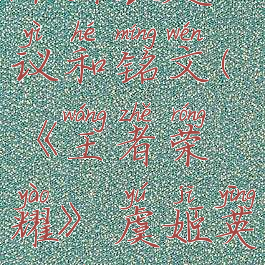 yì hé míng wén
议和铭文(
wáng zhě róng
《王者荣
yào yú jī yīng
耀》 虞姬英